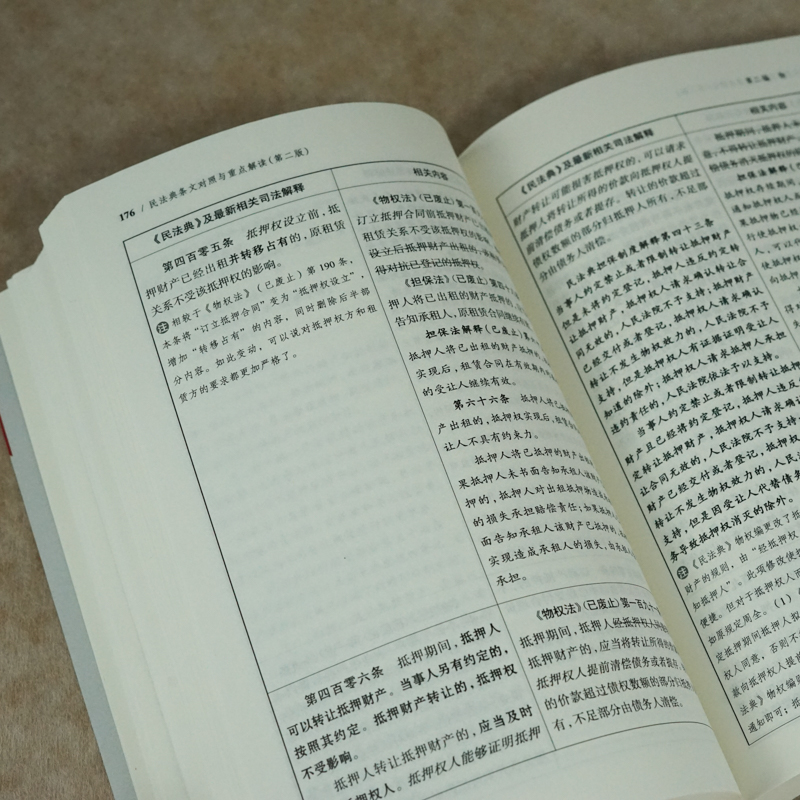 176 / 民法典条文对照与重点解读(第二版)
《民法典》及最新相关司法解释
第四百零五条 抵押权设立前，抵
押财产已经出租并转移占有的，原租赁
关系不受该抵押权的影响。
注 相较于《物权法》（已废止）第190条，
本条将“订立抵押合同”变为“抵押权设立”，
增加“转移占有”的内容，同时删除后半部
分内容。如此变动，可以说对抵押权方和租
赁方的要求都更加严格了。
第四百零六条 抵押期间，抵押人
可以转让抵押财产。当事人另有约定的，
按照其约定。抵押财产转让的，抵押权
不受影响。
抵押人转让抵押财产的，应当及时
抵押权人。抵押权人能够证明抵押
相关内容
《物权法》(已废止)第一
订立抵押合同前抵押财产
租赁关系不受该抵押权的影
设立后抵押财产出租的，
得对抗已登记的抵押权。
《担保法》(已废止)第四十
押人将已出租的财产抵押的，
告知承租人，原租赁合同继续
担保法解释(已废止)第
抵押人将已出租的财产抵押
实现后，租赁合同在有效期内
的受让人继续有效。
第六十六条 抵押人将已
产出租的，抵押权实现后，租赁
让人不具有约束力。
抵押人将已抵押的财产出租
果抵押人未书面告知承租人该
押的，抵押人对出租抵押物造
的损失承担赔偿责任；如果抵押
面告知承租人该财产已抵押的，
实现造成承租人的损失，由承租
承担。
《物权法》(已废止)第一百九十一
抵押期间，抵押人经抵押权人同意
抵押财产的，应当将转让所得的
抵押权人提前清偿债务或者提存。
的价款超过债权数额的部分归抵押
有，不足部分由债务人清偿。
第二编 物
《民法典》及最新相关司法解释
财产转让可能损害抵押权的，可以请求
抵押人将转让所得的价款向抵押权人提
前清偿债务或者提存。转让的价款超过
债权数额的部分归抵押人所有，不足部
分由债务人清偿。
民法典担保制度解释第四十三条
当事人约定禁止或者限制转让抵押财产
但是未将约定登记，抵押人违反约定转
让抵押财产，抵押权人请求确认转让合
同无效的，人民法院不予支持；抵押财产
已经交付或者登记，抵押权人请求确认
转让不发生物权效力的，人民法院不予
支持，但是抵押权人有证据证明受让人
知道的除外；抵押权人请求抵押人承担
违约责任的，人民法院依法予以支持。
当事人约定禁止或者限制转让抵押
财产且已经将约定登记，抵押人违反
定转让抵押财产，抵押权人请求确认
让合同无效的，人民法院不予支持；
财产已经交付或者登记，抵押权人
转让不发生物权效力的，人民法
支持，但是因受让人代替债务
务导致抵押权消灭的除外。
注 《民法典》物权编更改了抵
财产的规则，由“经抵押权
知抵押人”。此项修改使
便捷。但对于抵押权人而
如原规定周全。(1)
定抵押期间抵押人
权人同意，否则不
款向抵押权人提前
法典》物权编则
通知即可；抵
相关内容
抵押期间，抵押人未